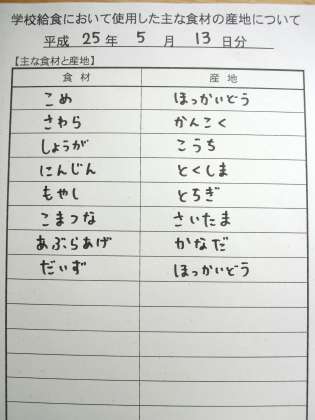 学校給食において使用した主な食材の産地について
平成 25 年 5 月 13 日分
【主な食材と産地】
食材 産地
こめ ほっかいどう
さわら かんこく
しょうが こうち
にんじん とくしま
もやし とちぎ
こまつな さいたま
あぶらあげ かなだ
だいず ほっかいどう